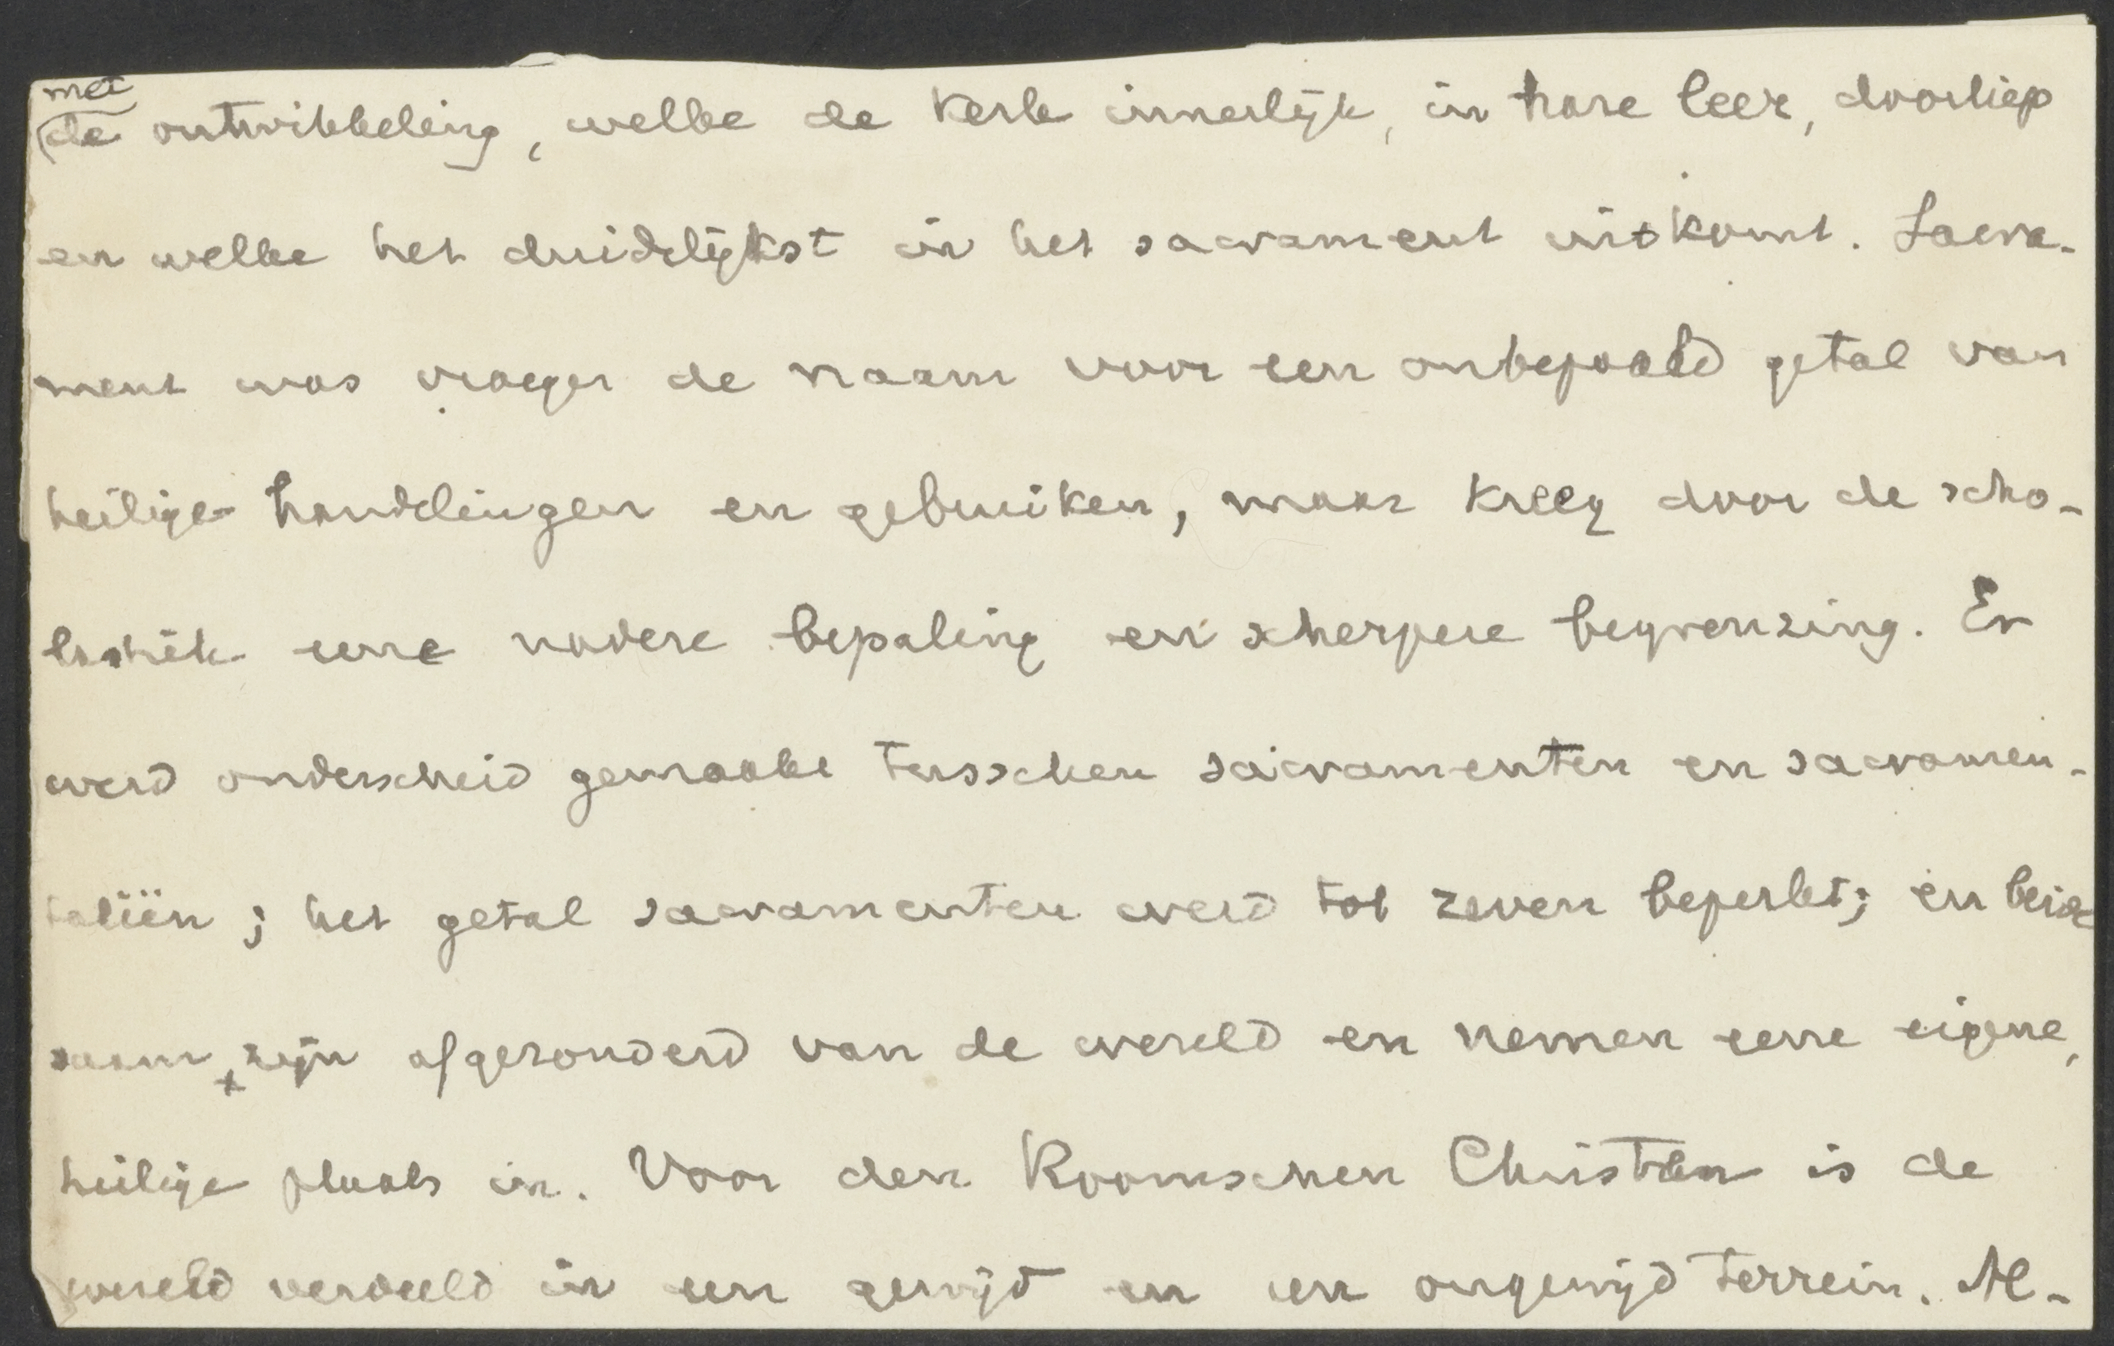 met
de ontwikkeling, welke de Kerk innerlijk, in hare leer, doorliep
en welke het duidelijkst in het sacrament uitkomt. Sacra-
ment was vroeger de naam voor een onbepaald getal van
heilige handelingen en gebruiken, maar kreeg door de scho-
lastiek eene nadere bepaling en scherpere begrenzing. Er
werd onderscheid gemaakt tusschen sacramenten en sacramen-
taliën; het getal sacramenten werd tot zeven beperkt; en beide
saam zijn afgezonderd van de wereld en nemen eene eigene,
heilige plaats in. Voor den Roomschen Christen is de
wereld verdeeld in een gewijd en een ongewijd terrein. Al-